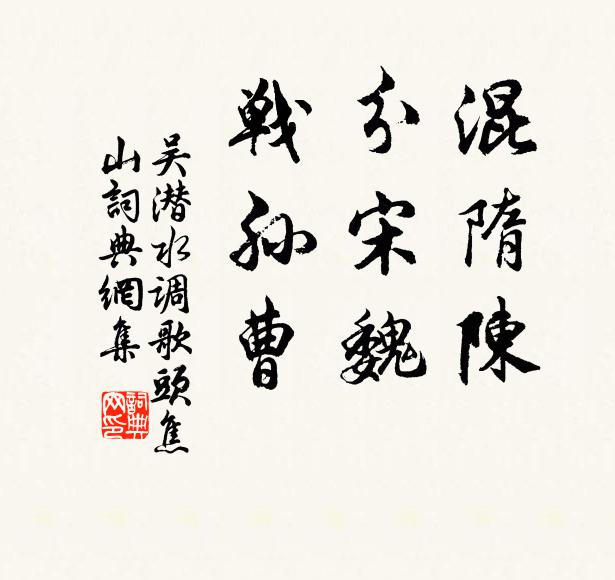 混隋陳
分宋魏
戦孙曹
吴潜水调歌頭焦
山詞典網集
詞典
网印